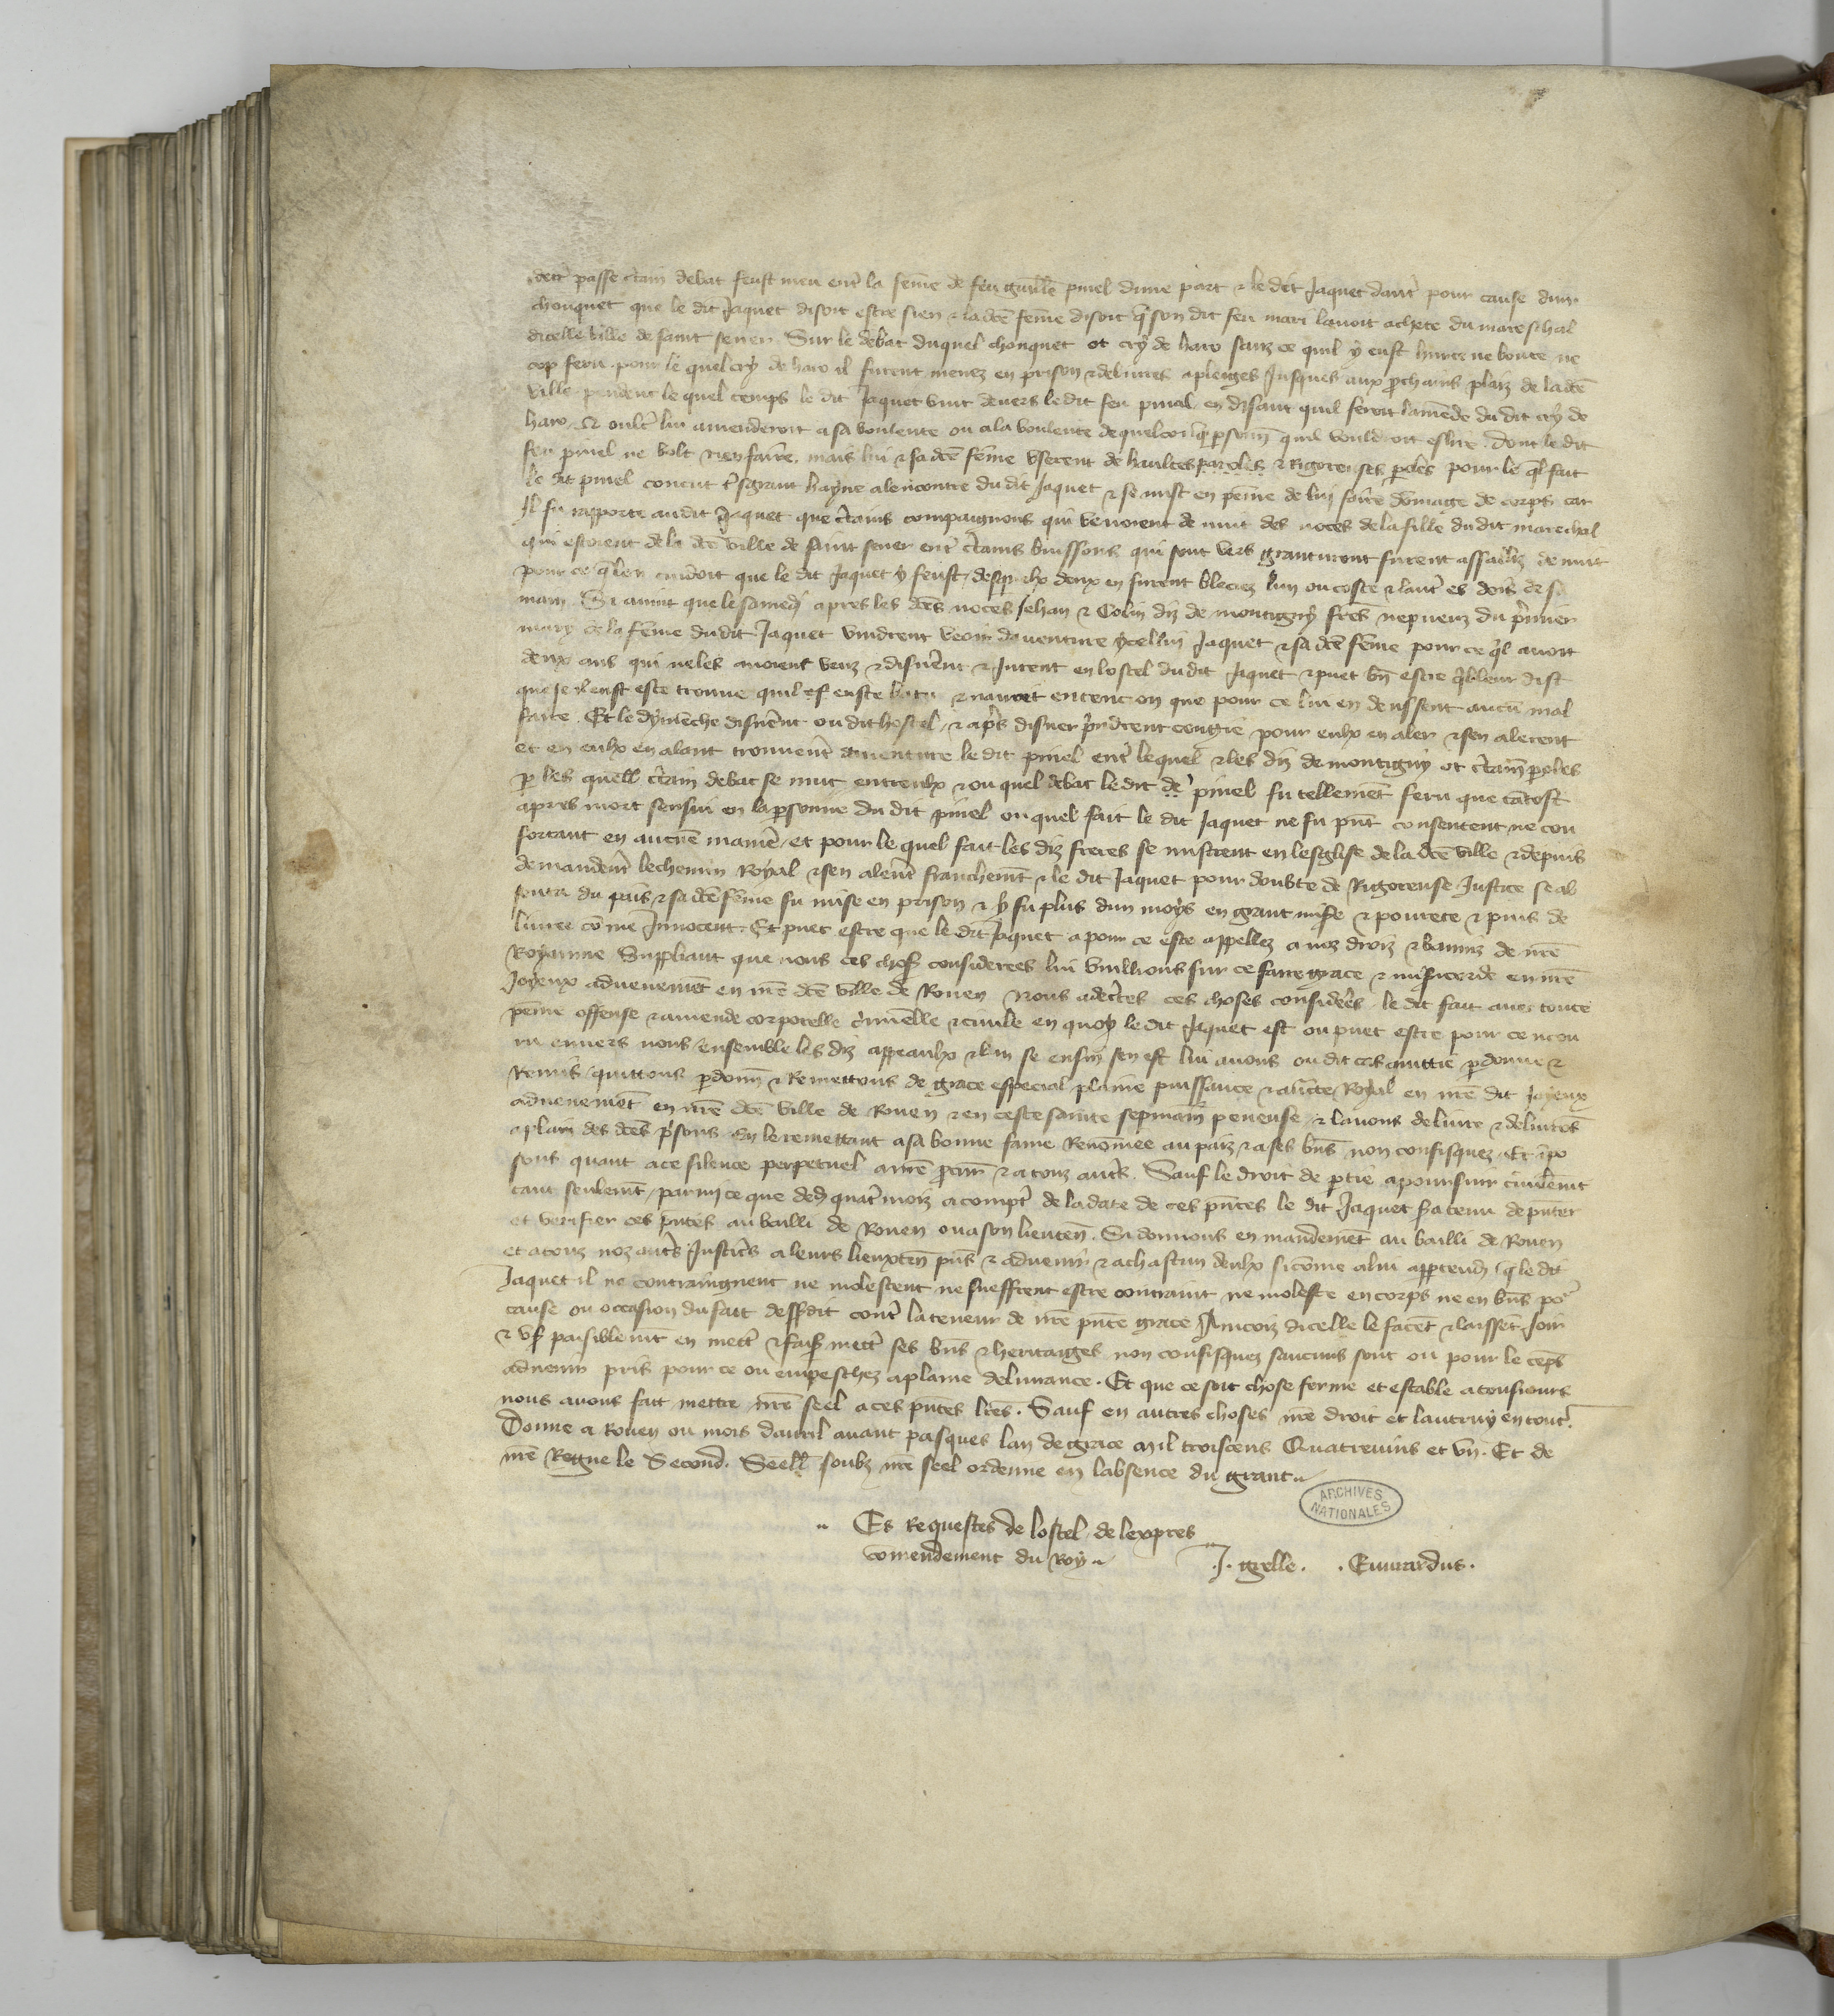 passe ctain debat feust meu entˀ la fem̄e de feu guillē pinel dune part ⁊ le dit Jaquet dautˀ pour cause dun
chouquet que le dit Jaquet disoit estre sien ⁊ ladcē fem̄e disoit q̄ son dit feu mari lauoit achete du mareschal
dicelle ville de saint seuer Sur le debat duquel chouquet ot cry de haro sanz ce quil y eust hurte ne boute ne
cop feru pour le quel cry de haro il furent menez en prison ⁊ deliures a pleiges Jusques aux prochains plaiz de ladcē
ville pendent le quel temps le dit Jaquet vint deuers le dit feu pinel en disant quil feroit lamēde du dit cry de
haro ⁊ oultˀ lui amenderoit a sa voulente ou a la voulente de quelconq̄ psonne quil vouldroit eslire dont le dit
feu pinel ne volt rien faire mais lui ⁊ sa dcē fem̄e userent de haultes paroles ⁊ Rigoreuses poles pour le ql fait
le dit pinel conceut tˀsgrant hayne alencontre du dit Jaquet ⁊ se mist en peine de lui faire dōmage de corps car
Il fu rapporte audit Jaquet que ctains compaignons qui venoient de nuit des noces de la fille du dit marechal
qui estoient de la dcē ville de saint seuer entˀ ctains buissons qui sont vers furent assailliz de nuit
pour ce q̄ len cuidoit que le dit Jaquet y feust desqˀlx deux en furent bleciez lun ou coste ⁊ lautˀ es dois de sa
main Si auint que le samedi apres les dcēs noces Jehan ⁊ Colin diz de montigny frēs nepueuz du pˀmier
mary de la fem̄e du dit Jaquet vindrent veoir dauenture ycellui Jaquet ⁊ sa dcē fem̄e pour ce ql auoit
deux ans qui ne les auoient veuz ⁊ disnerēt ⁊ Jurent en lostel du dit Jaquet ⁊ puet bn̄ estre dist
que se il eust este trouue quil este batu ⁊ on que pour ce lui en deussent aucū mal
faire Et le dymēche disnerēt ou dit hostel ⁊ apˀs disner pˀndrent congie pour eulx en aler ⁊ sen alerent
et en eulx en alant trouuerēt dauenture le dit pinel entˀ lequel ⁊ les diz de montigny ot ctain̄ poles
p les quell ctain debat se mut entreulx ⁊ ou quel debat le dit de pinel fu tellemēt feru que tātost
apres mort sensui en la psonne du dit pinel ou quel fait le dit Jaquet ne fu pn̄t consentent ne con
fortant en aucūe manieˀ et pour le quel fait les diz freres se mistrent en lesglise de la dcē ville ⁊ depuis
demanderēt le chemin Royal ⁊ sen alerēt franchemt̄ ⁊ le dit Jaquet pour doubte de Rigoreuse Justice se ab
senta du pais ⁊ sa dcē fem̄e fu mise en prison ⁊ y fu plus dun moys en grant misˀe ⁊ pourete ⁊ puis de
liuree cōme Innocent Et puet estre que le dit Jaquet a pour ce este appellez a noz droiz ⁊ banniz de nrē
Royaume Suppliant que nous ces choses considerees lui vuillions sur ce faire grace ⁊ misˀicorde en nrē
Joyeux aduenemēt en nrē dcē ville de Rouen Nous adectes ces choses consideres le dit fait auec toute
peine offense ⁊ amende corporelle cˀminelle ⁊ ciuile en quoy le dit Jaquet est ou puet estre pour ce encou
ru enuers nous ensemble les diz appeaulx ⁊ ban se ensui sen est lui auons ou dit cas quittie pdonne ⁊
Remis quittons pdonn̄ ⁊ Remettons de grace especial plaine puissance ⁊ aucte Royal en nrē dit Joyeux
aduenemēt en nrē dcē ville de Rouen ⁊ en ceste sainte sepmain̄ peneuse ⁊ lauons deliure ⁊ deliurōs
a plain des dcēs pˀsons En le remettant a sa bonne fame Renōmee au pais ⁊ a ses bn̄s non confisquez Et īpo
sons quant a ce silence perpetuel a nrē pcur̄ ⁊ a touz autˀs Sauf le droit de ptie a poursuir ciuilemt̄
tant seulemt̄ parmi ce que dedˀ quatˀ mois a comptˀ de la date de ces pn̄tes le dit Jaquet sˀa tenu de pˀnter
et verifier ces pn̄tes au bailli de Rouen ou a son lieuten̄ Si donnons en mandemēt au bailli de Rouen
et a touz noz autˀs Justicˀs a leurs lieuxten̄ pn̄s ⁊ aduenir ⁊ a chascun deulx si cōme a lui apptendˀ q̄ le dit
Jaquet il ne contraingnent ne molestent ne sueffrent estre contraint ne moleste en corps ne en bn̄s poˀ
cause ou occasion du fait dessˀdit contˀ la teneur de nrē pn̄te grace Aincoiz dicelle le facēt ⁊ laissēt Joir
⁊ usˀ paisiblemt̄ en mettˀ ⁊ faisˀ mettˀ ses bn̄s ⁊ heritaiges non confisquez saucuns sont ou pour le tēps
aduenir pris pour ce ou empeschez a plaine deliurance. Et que ce soit chose ferme et estable a tousiours
nous auons fait mettre nrē seel a ces pn̄tes lrēs. Sauf en autres choses nrē droit et lautruy en tout.
Donne a Rouen ou mois dauril auant pasques lan de grace mil troiscens Quatreuins et vn. Et de
nrē Regne le Second. Seellˀ soubz nrē seel ordenne en labsence du grant
ARCHIVES NATIONALES
Es Requestes de lostel de lexpres
comendement du Roy
.J. grelle. . Euurardus.